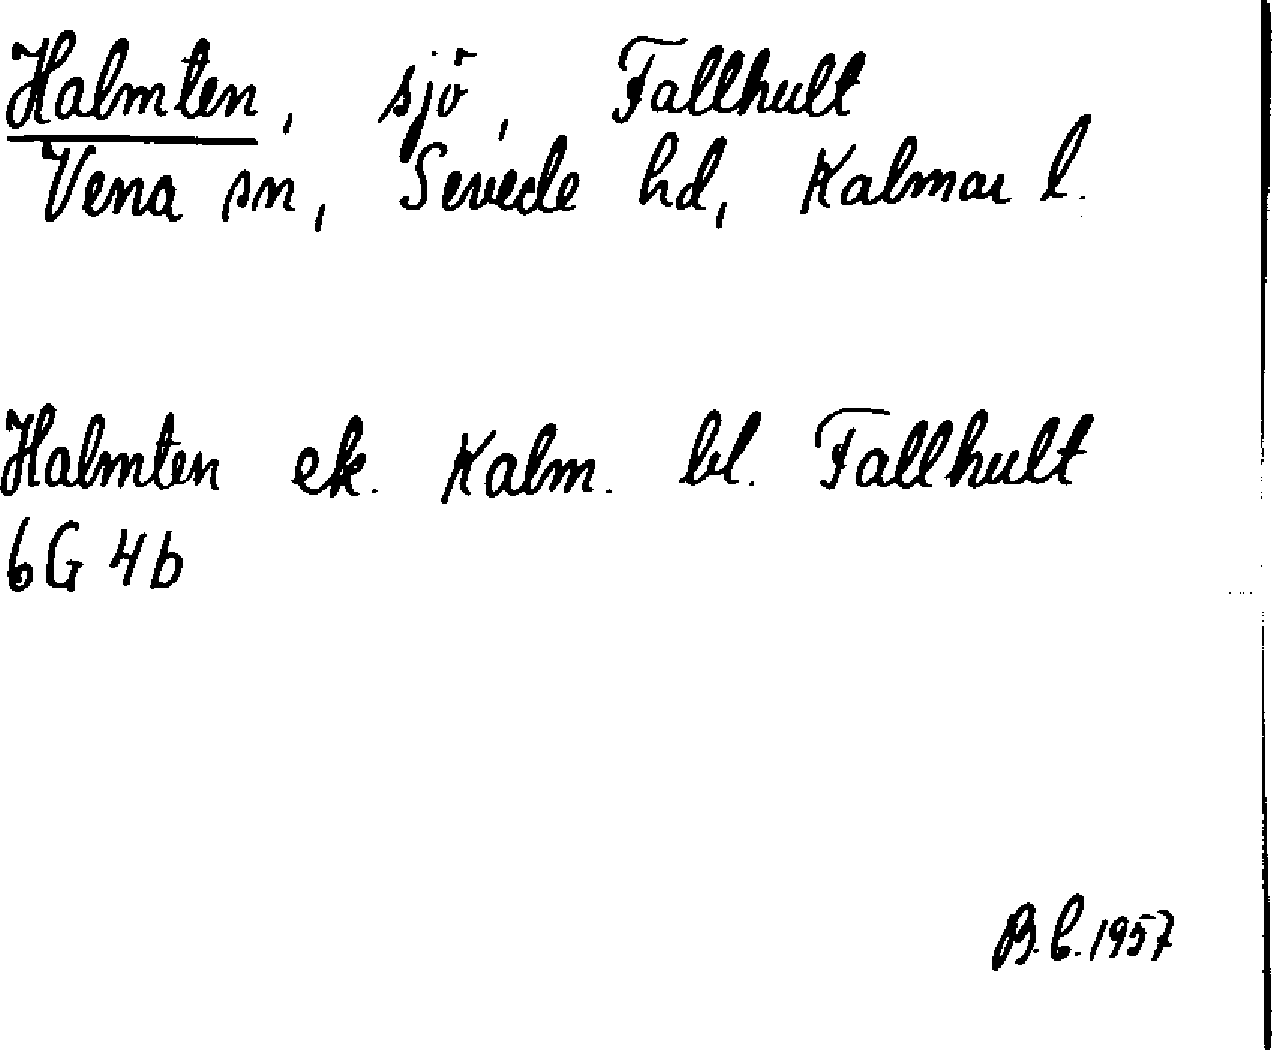 Halmten, sjö, Fallhult
Vena sn, Sevede hd, Kalmar l.
Halmten ek. Kalm. bl. Fallhult
6G 4b
B.L. 1957